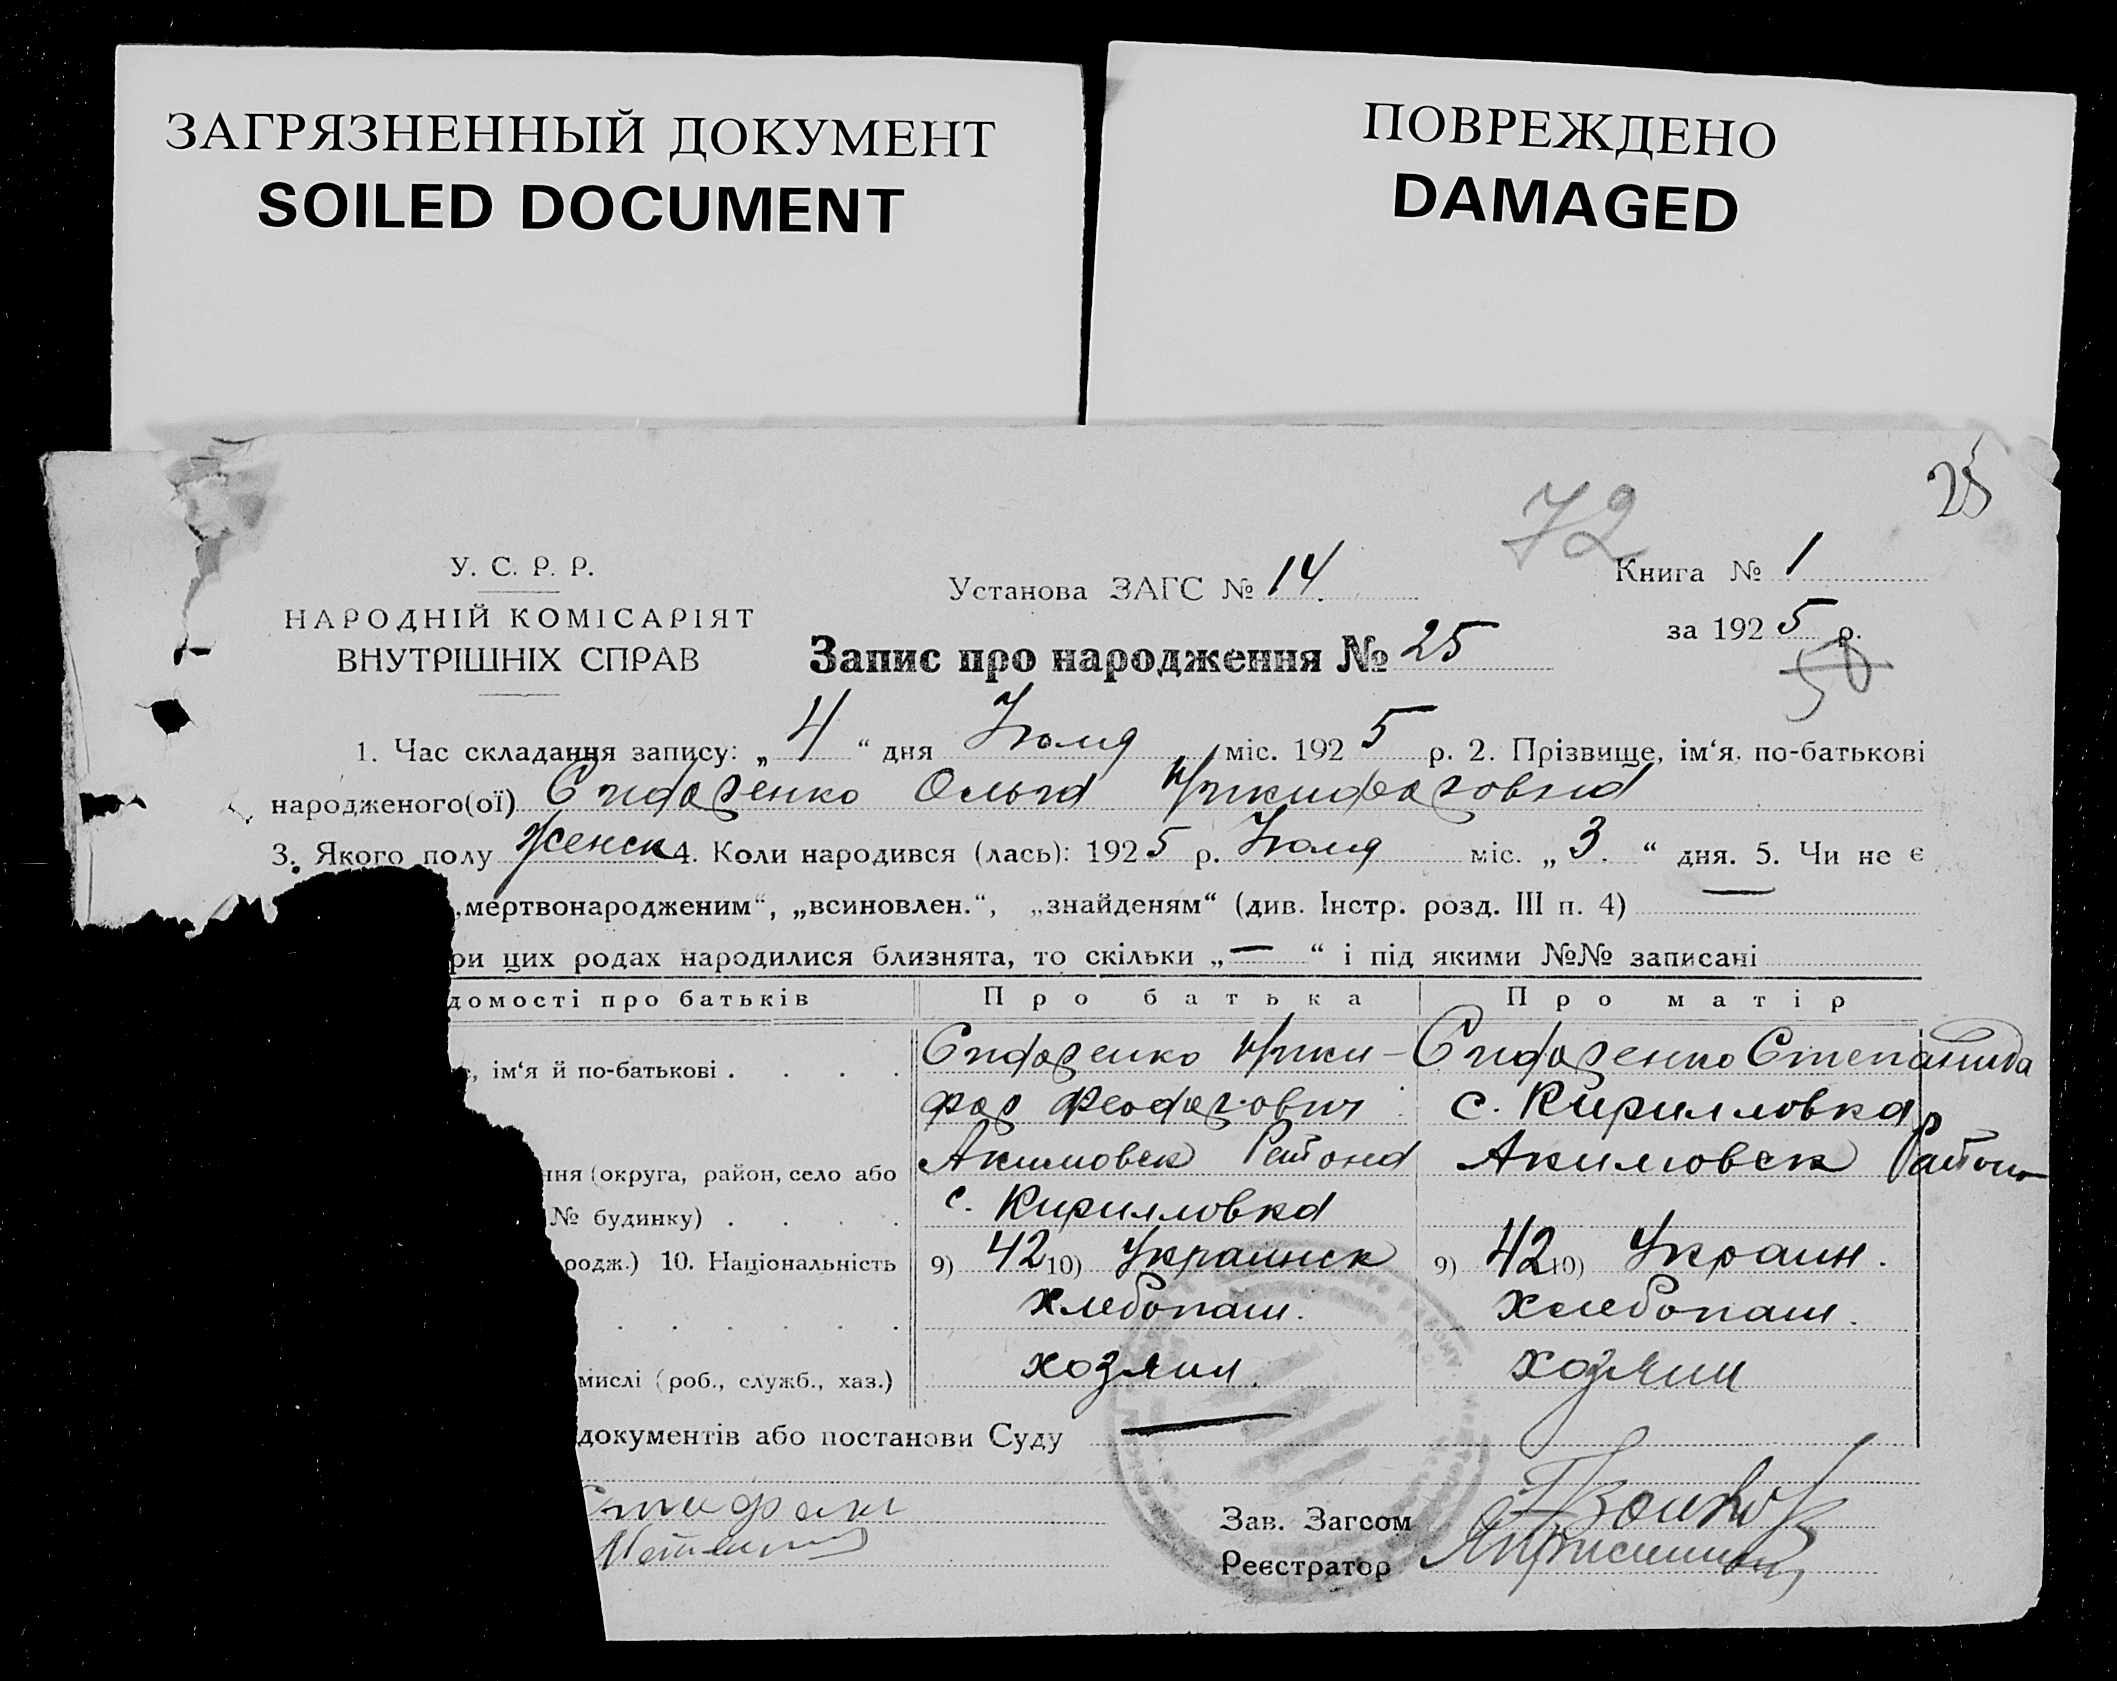 ЗАГРЯЗНЕННЫЙ ДОКУМЕНТ
SOILED DOCUMENT
ПОВРЕЖДЕНО
DAMAGED
25
72
У. С. Р. Р.
НАРОДНІЙ КОМІСАРІЯТ
ВНУТРІШНІХ СПРАВ
Установа ЗАГС № 14
Книга № 1
за 1925 р.
50
Запис про народження № 25
1. Час складання запису: „ 4 “ дня Июля міс. 1925 р. 2. Прізвище, ім‘я, по-батькові
народженого(ої) Ольга Никифоровна
3. Якого полу Женск 4. Коли народився (лась): 1925 р. Июля міс. „ 3. “ дня. 5. Чи не є
„мертвонародженим“, „всиновлен.“, „знайденям“ (див. Інстр. розд. III п. 4) —
ри цих родах народилися близнята, то скільки „ — “ і під якими №№ записані
домості про батьків Про батька Про матір
, ім‘я й по-батькові . . . . Ники- Степанида
фор Феодорович с. Кирилловка
ння (округа, район, село або Акимовск Района Акимовск Района
№ будинку) . . . . с. Кирилловка
родж.) 10. Національність 9) 42 10) Украинск 9) 42 10) Украин.
хлебопаш. хлебопаш.
мислі (роб., служб., хаз.) хозяин. хозяин
документів або постанови Суду —
Зав. Загсом
Реєстратор